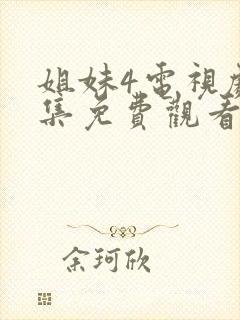 姐妹4電視劇
集免費觀看
余珂欣